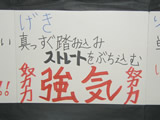 げき
真っすぐ踏み込み
ストレートをぶち込む
努力 強気 努力
い
!!